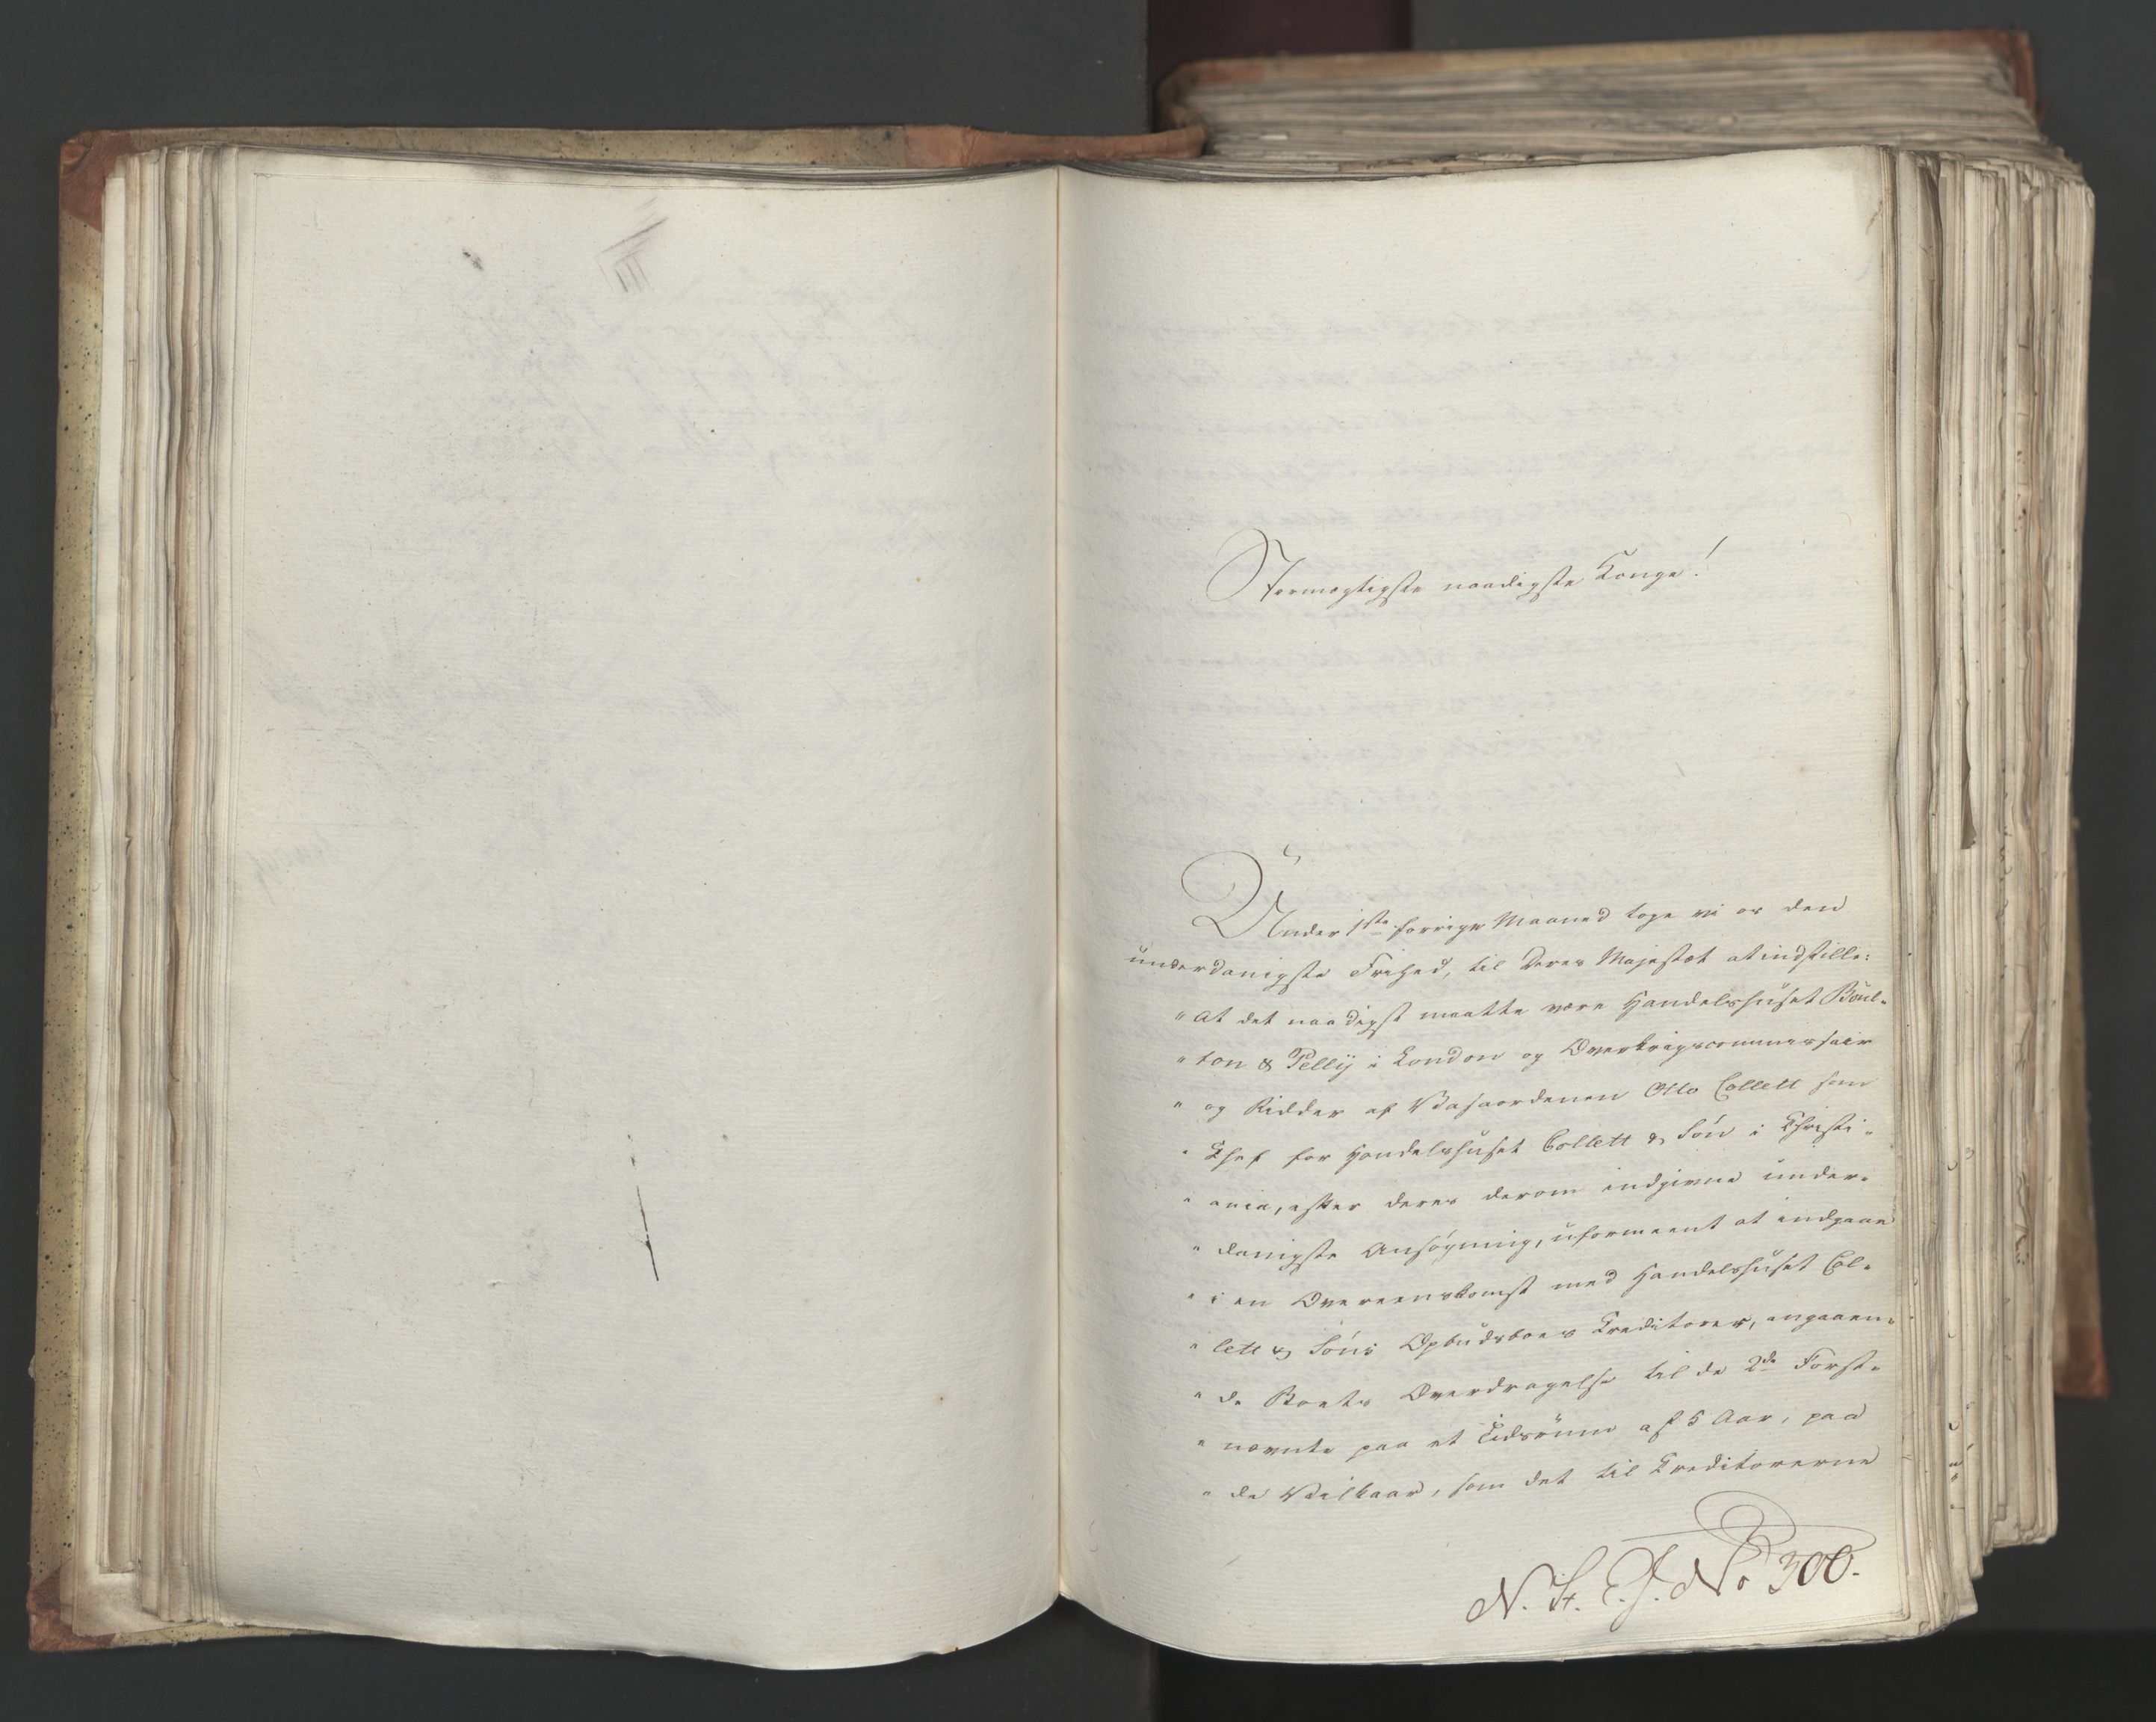 Stormægtigste naadigste Konge!
Under 1ste forrige Maaned toge vi os den
underdanigste Frihed, til Deres Majestæt at indstille:
"At det naadigst maatte være Handelshuset Boul-
"ton & Pellÿ i London og Overkrigscommissair
"og Ridder af Vasaordenen Otto Collett som
"Chef for Handelshuset Collett & Søn i Christi-
"ania, efter deres derom indgivne under-
"danigste Ansøgning, uformeent at indgaae
"i en Overeenskomst med Handelshuset Col-
"lett & Søns Opbudsboes Creditorer, angaaen-
"de Boets Overdragelse til de 2de Først-
"nævnte paa et Tidsrum af 5 Aar, paa
"de Vilkaar, som det til Creditorerne
N. St. E. J. No 300.